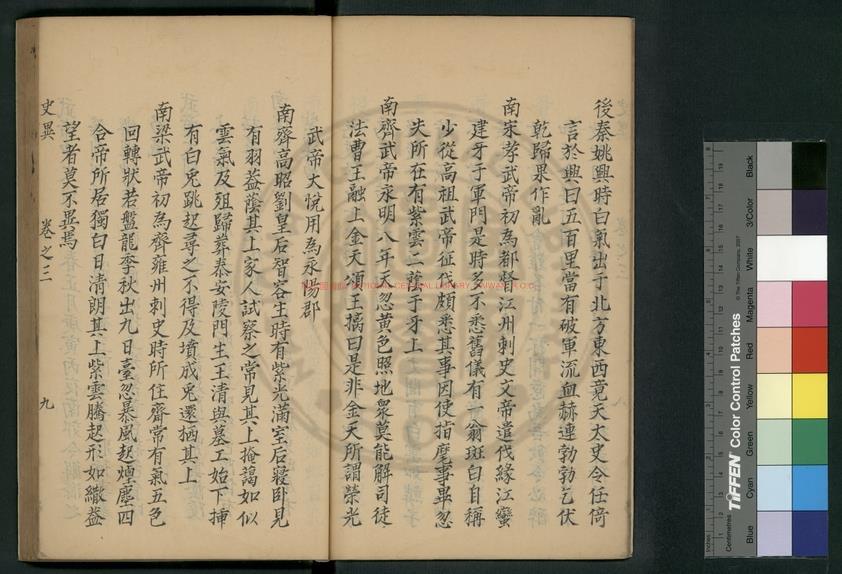 後秦姚興時白氣出于北方東西竟天太史令任猗
言於興曰五百里當有破軍流血赫連勃勃乞伏
乾歸果作亂
南宋孝武帝初為都督江州刺史文帝遣伐緣江蠻
建牙于軍門是時多不悉舊儀有一翁斑白自稱
少從高祖武帝征伐頗悉其事因使指麾事畢忽
失所在有紫雲二蔭于牙上
南齊武帝永明八年天忽黃色照地衆莫能解司徒
法曹王融上金天頌王摛曰是非金天所謂榮光
武帝大悅用為永陽郡
南齊高昭劉皇后智容生時有紫光滿室后寢卧見
有羽葢蔭其上家人試察之常見其上掩藹如似
雲氣及殂歸葬泰安陵門生王清與墓工始下揷
有白兎跳起尋之不得及墳成兎還栖其上
南梁武帝初為齊雍州刺史時所住齋常有氣五色
回轉狀若盤龍季秋出九日臺忽暴風起煙塵四
合帝所居獨白日清朗其上紫雲騰起形如繖葢
望者莫不異焉
史異
卷之三
九
NATIONAL CENTRAL LIBRARY, TAIWAN, R.O.C.
TIFFEN Color Control Patches
© The Tiffen Company, 2007
Centimetres
Inches
Blue
Cyan
Green
Yellow
Red
Magenta
White
3/Color
Black